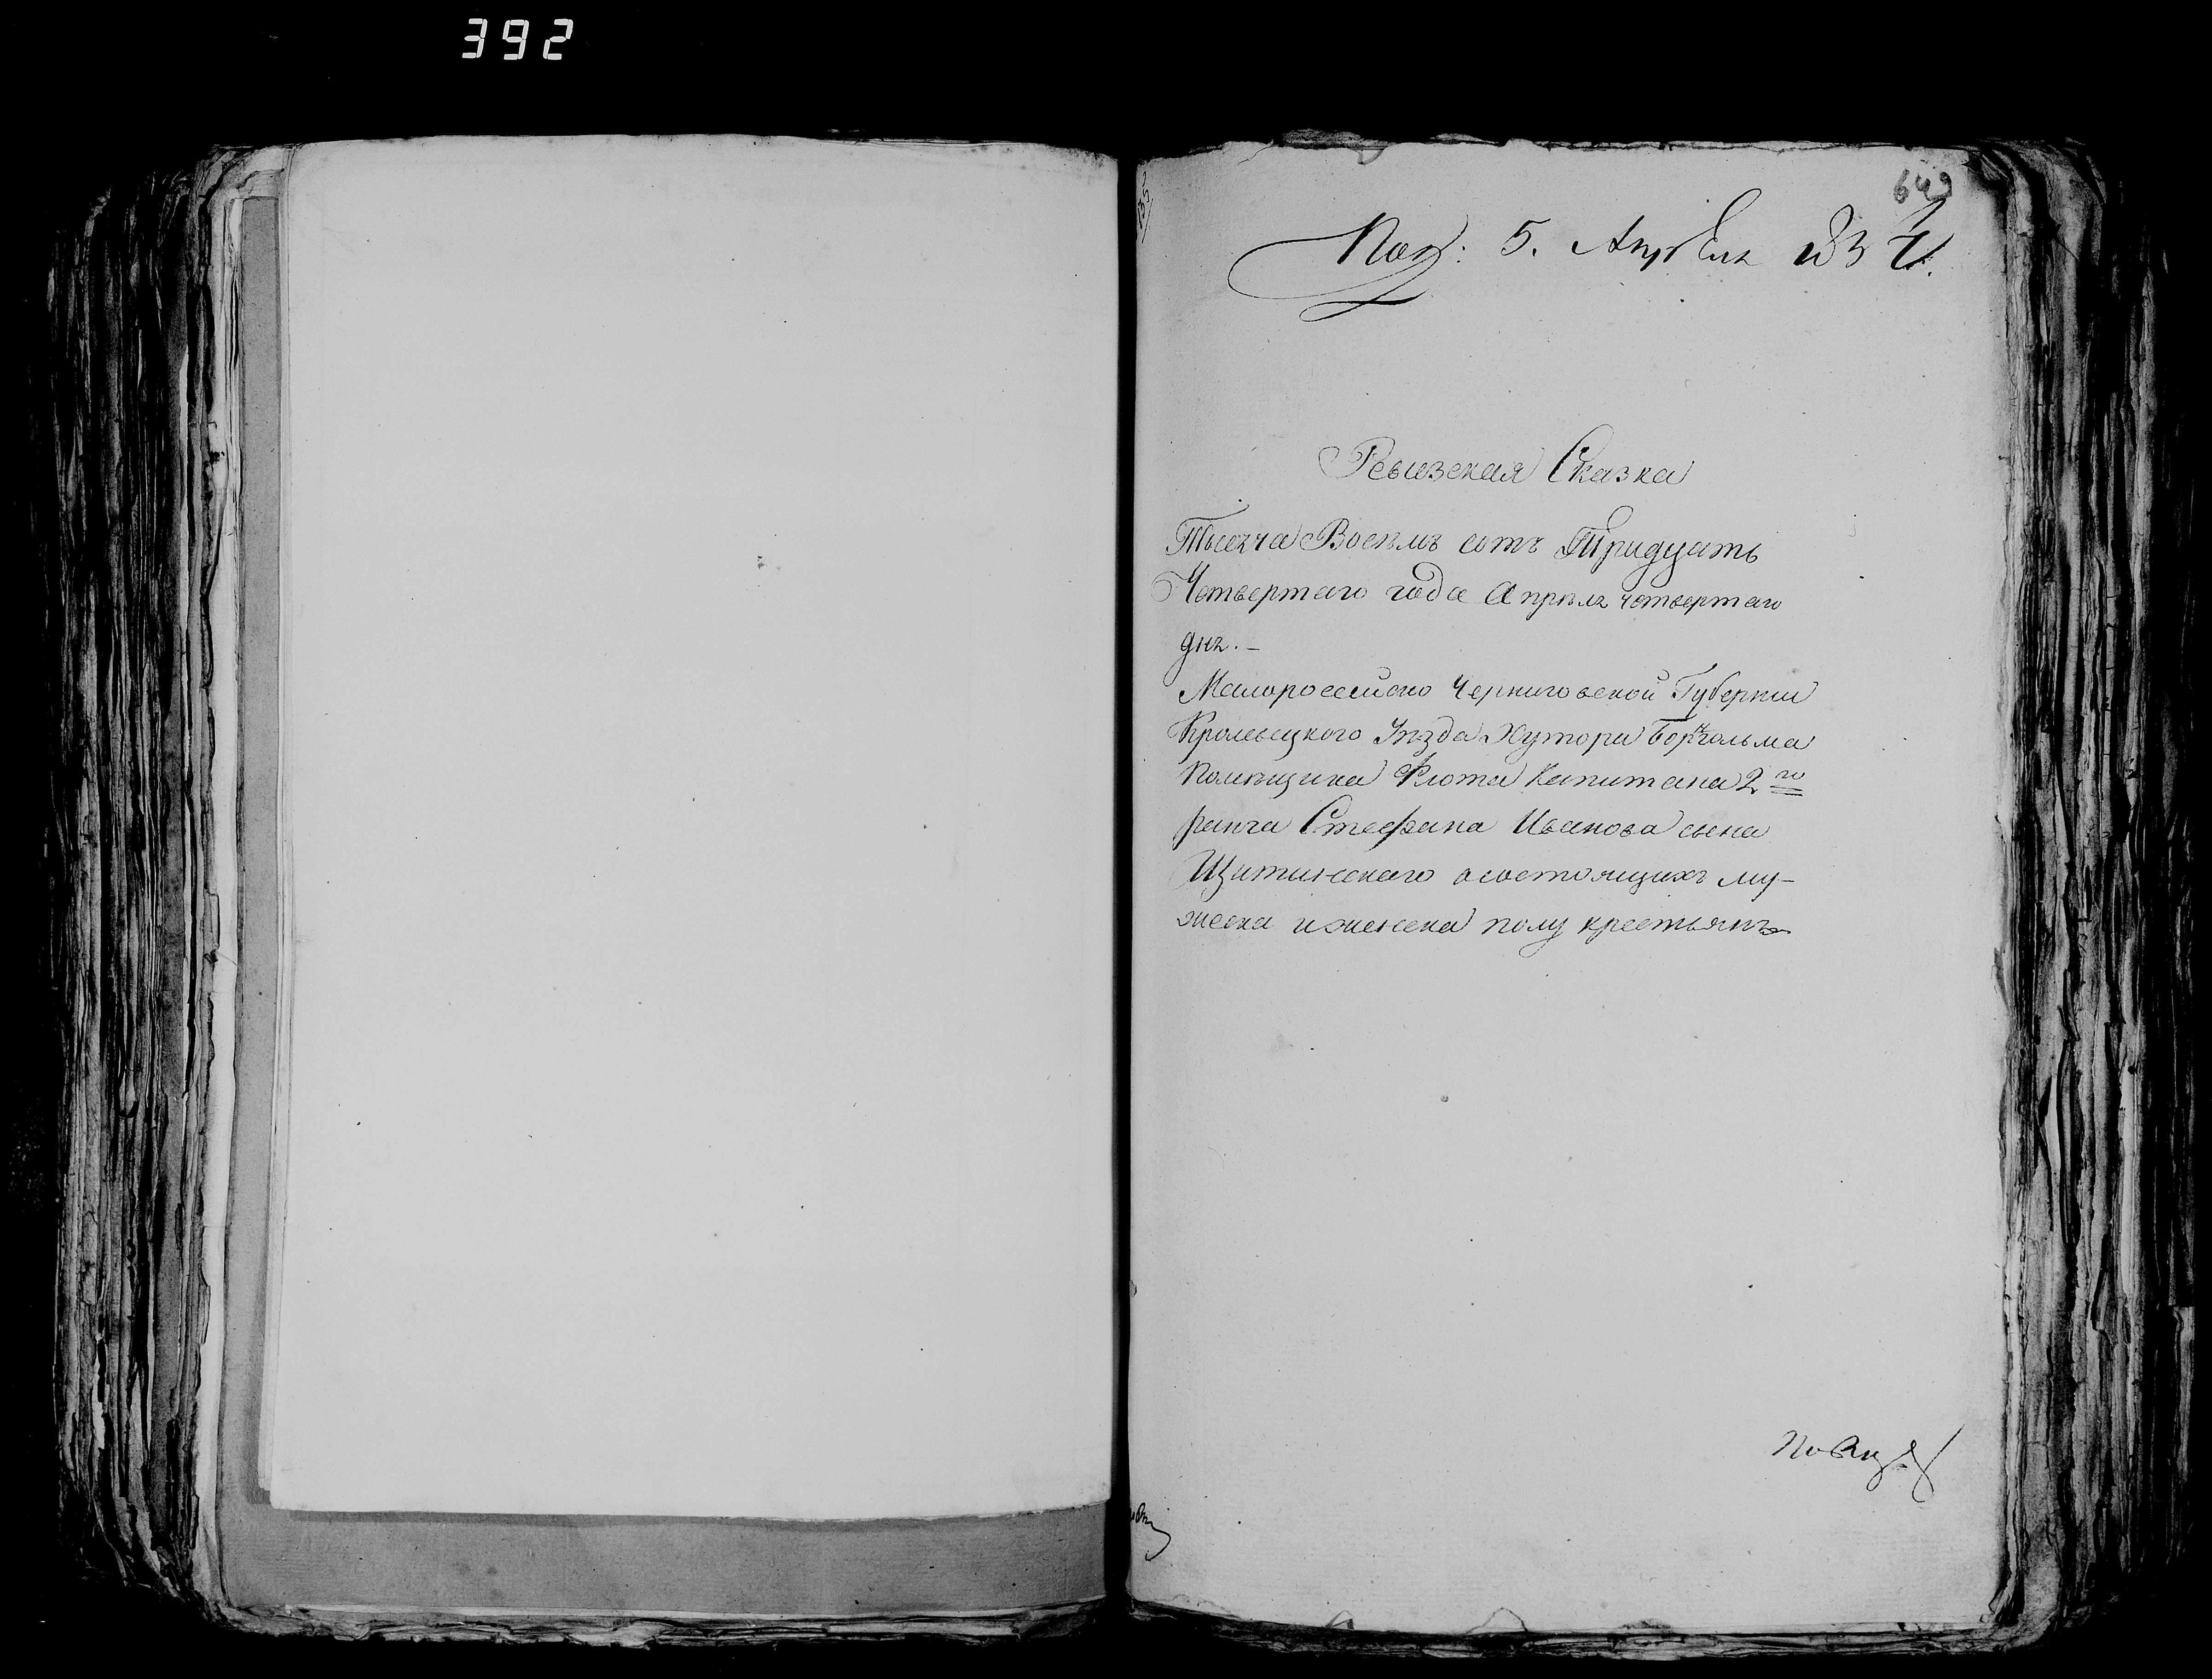 392
649
Пол: 5. Апреля 1834.
Ревизская Сказка
Тысяча Восемь сотъ Тридцать
Четвертаго года Апреля четвертаго
дня.-
Малороссийско Черниговской Губернии
Кролевецкого Уѣзда Хутора
Помѣщика Флота Капитана 2го
ранга Стефана Иванова сына
Щитинскаго о состоящихъ му-
жеска и женска полу крестьянъ